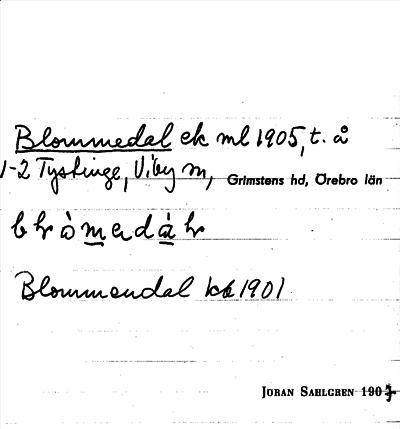 Blommedal ek ml 1905, t. å
1-2 Tystinge, Viby sn, Grimstens hd, Örebro län
Blommendal kk 1901
JÖRAN SAHLGREN 190